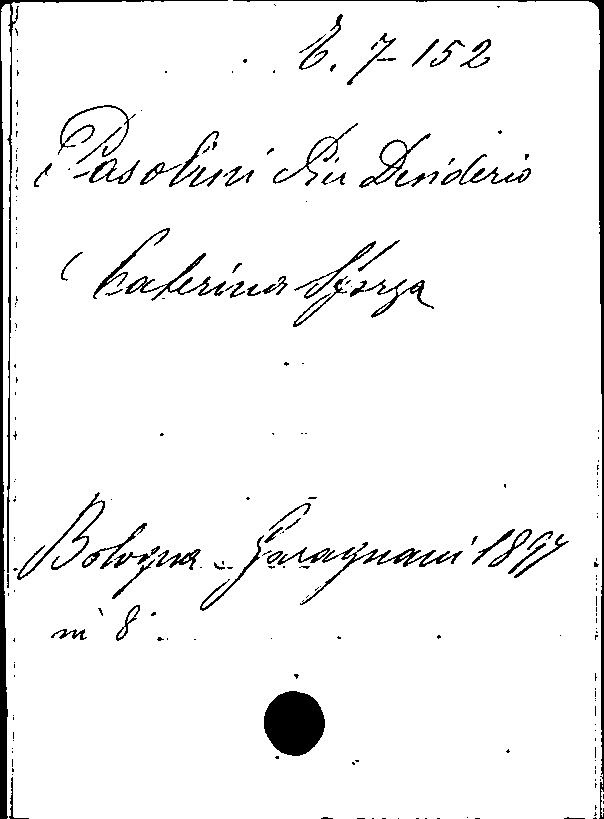 E. 7-152
Pasolini Pier Desiderio
Caterina Sforza
Bologna - Garagnani 1897
in 8°.